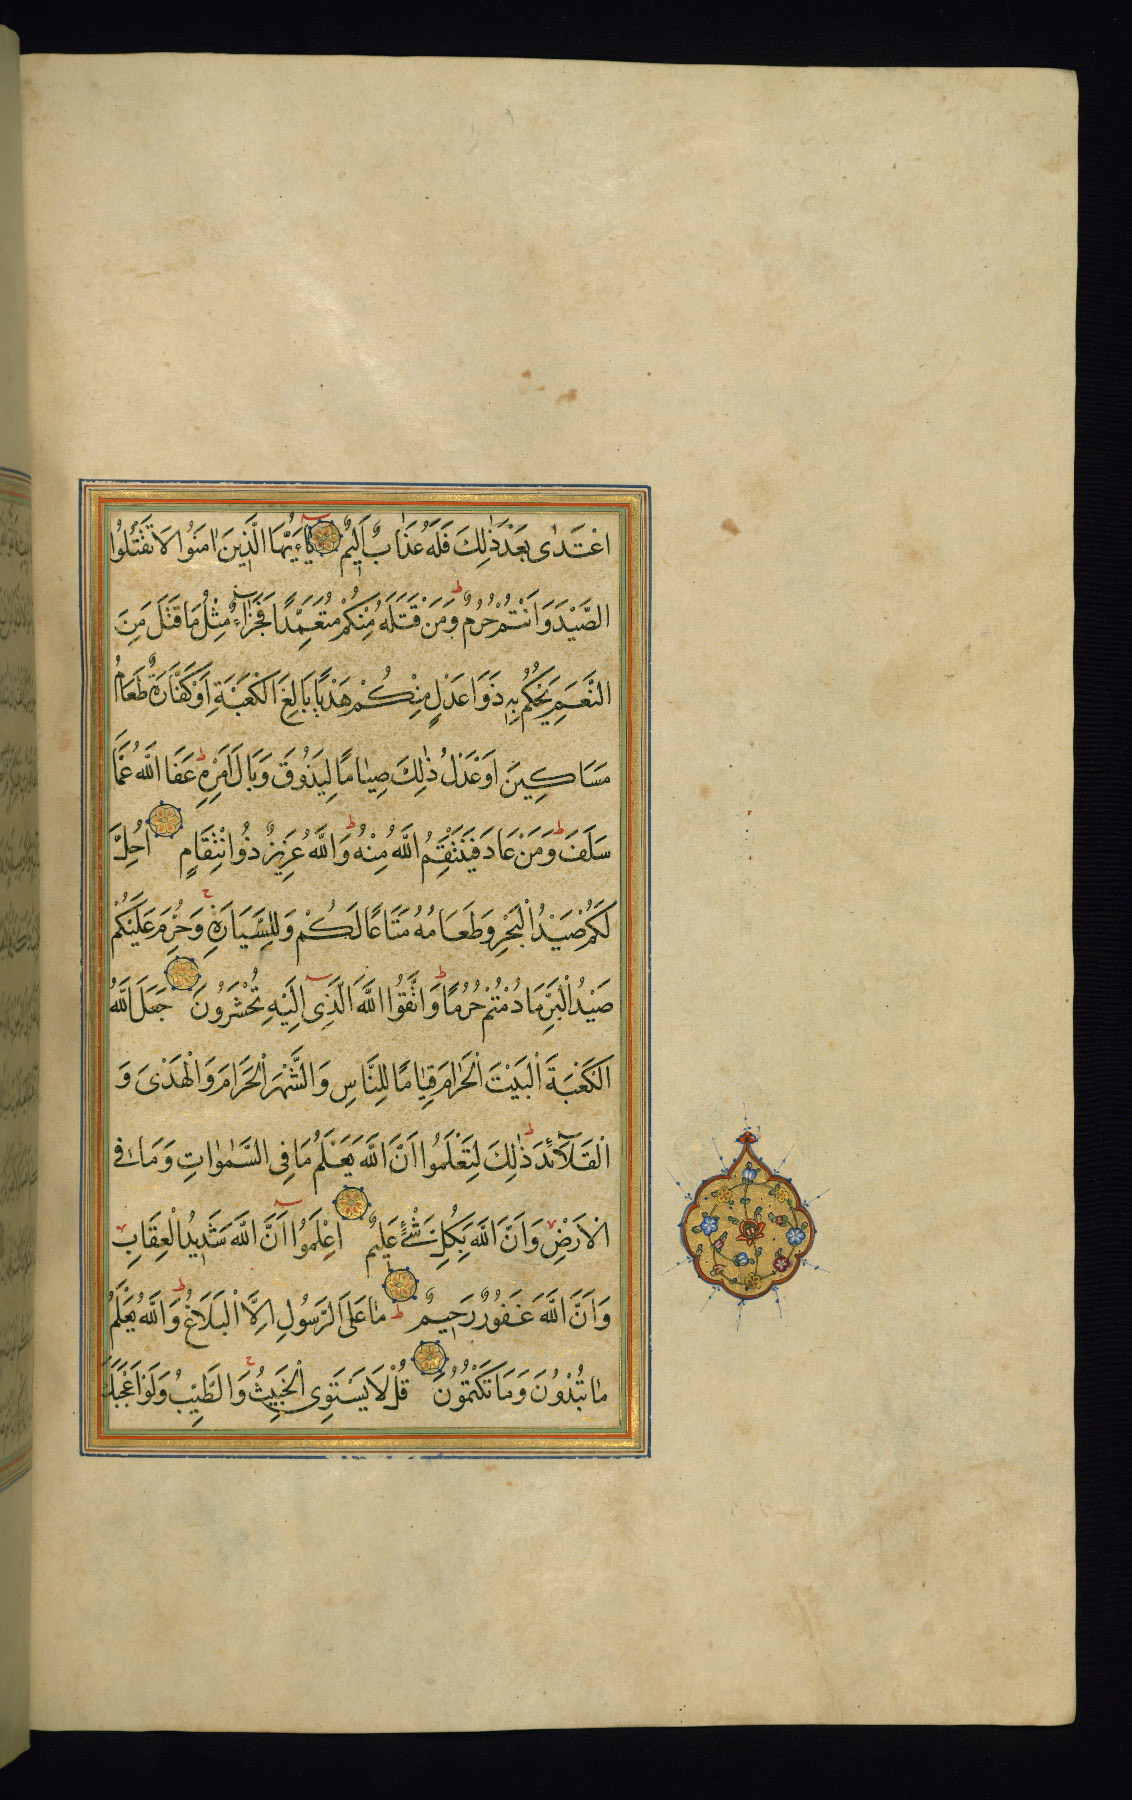 اعْتَدٰى بَعْدَ ذٰلِكَ فَلَهُ عَذَابٌ اَلِيمٌ يَاءَيُّهَا الَّذِينَ اٰمَنُوا لَا تَقْتُلُوا
الصَّيْدَ وَاَنْتُمْ حُرُمٌ وَمَنْ قَتَلَهُ مِنْكُمْ مُتَعَمِّدًا فَجَزَاءٌ مِثْلُ مَا قَتَلَ مِنَ
النَّعَمِ يَحْكُمُ بِهِ ذَوَا عَدْلٍ مِنْكُمْ هَدْيًا بَالِغَ الْكَعْبَةِ اَوْ كَفَّارَةٌ طَعَامُ
مَسَاكِينَ اَوْ عَدْلُ ذٰلِكَ صِيَامًا لِيَذُوقَ وَبَالَ اَمْرِهِ عَفَا اللَّهُ عَمَّا
سَلَفَ وَمَنْ عَادَ فَيَنْتَقِمُ اللَّهُ مِنْهُ وَاللَّهُ عَزِيزٌ ذُو انْتِقَامٍ اُحِلَّ
لَكُمْ صَيْدُ الْبَحْرِ وَطَعَامُهُ مَتَاعًا لَكُمْ وَلِلسَّيَّارَةِ وَحُرِّمَ عَلَيْكُمْ
صَيْدُ الْبَرِّ مَا دُمْتُمْ حُرُمًا وَاتَّقُوا اللَّهَ الَّذِى اِلَيْهِ تُحْشَرُونَ جَعَلَ اللَّهُ
الْكَعْبَةَ الْبَيْتَ الْحَرَامَ قِيَامًا لِلنَّاسِ وَالشَّهْرَ الْحَرَامَ وَالْهَدْىَ وَ
الْقَلَائِدَ ذٰلِكَ لِتَعْلَمُوا اَنَّ اللَّهَ يَعْلَمُ مَا فِى السَّمٰوَاتِ وَمَا فِى
الْاَرْضِ وَاَنَّ اللَّهَ بِكُلِّ شَىْءٍ عَلِيمٌ اِعْلَمُوا اَنَّ اللَّهَ شَدِيدُ الْعِقَابِ
وَاَنَّ اللَّهَ غَفُورٌ رَحِيمٌ مَا عَلَى الرَّسُولِ اِلَّا الْبَلَاغُ وَاللَّهُ يَعْلَمُ
مَا تُبْدُونَ وَمَا تَكْتُمُونَ قُلْ لَا يَسْتَوِى الْخَبِيثُ وَالطَّيِّبُ وَلَوْ اَعْجَبَكَ